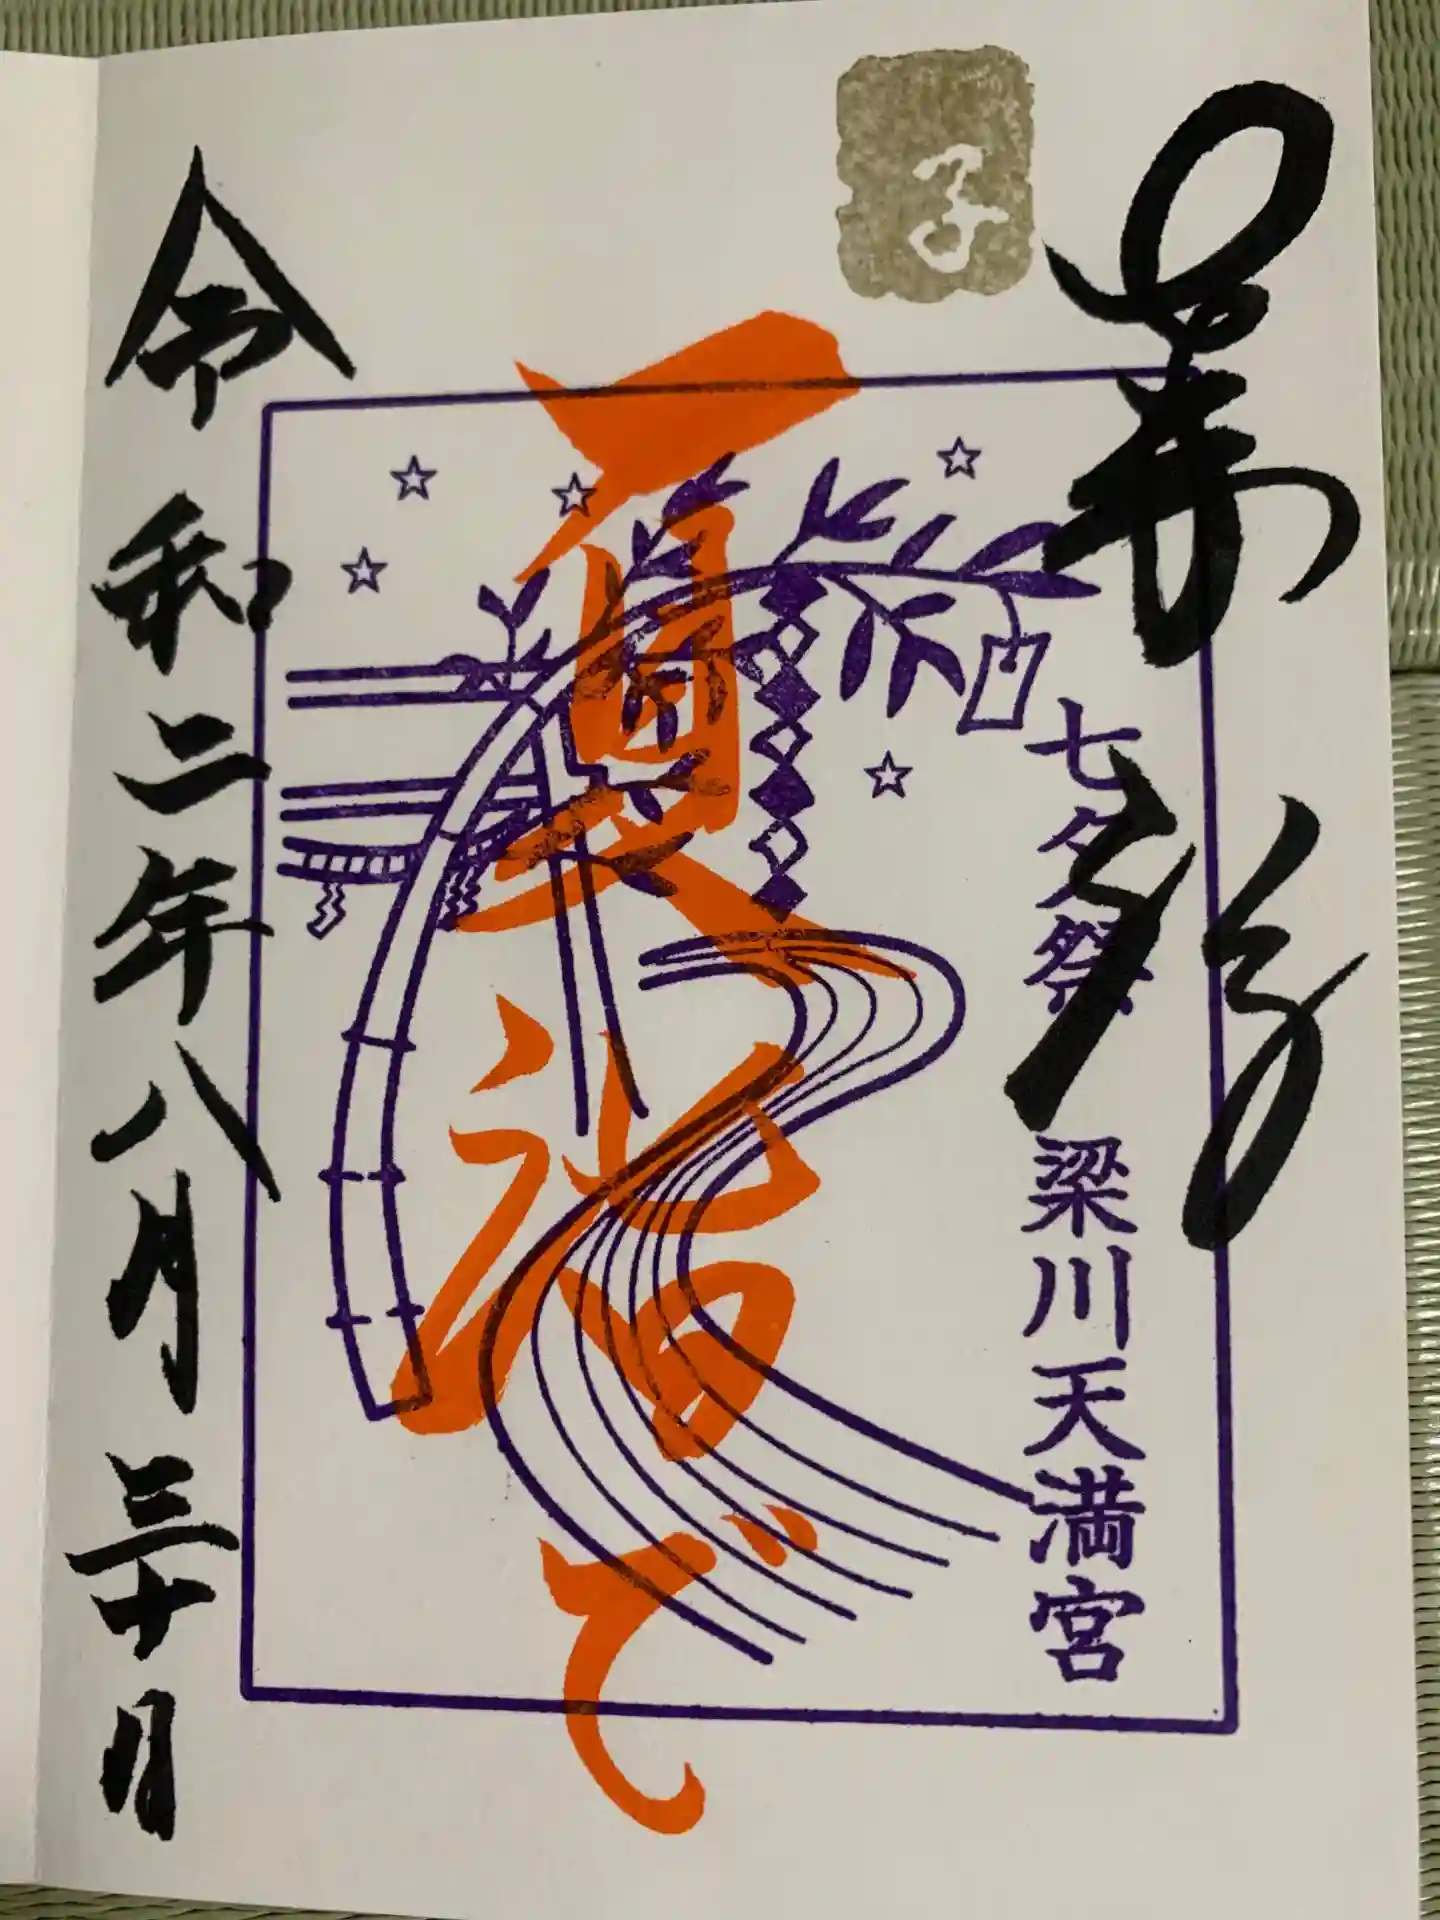 奉拝
七夕祭 梁川天満宮
子
夏詣で
令和二年八月三十日